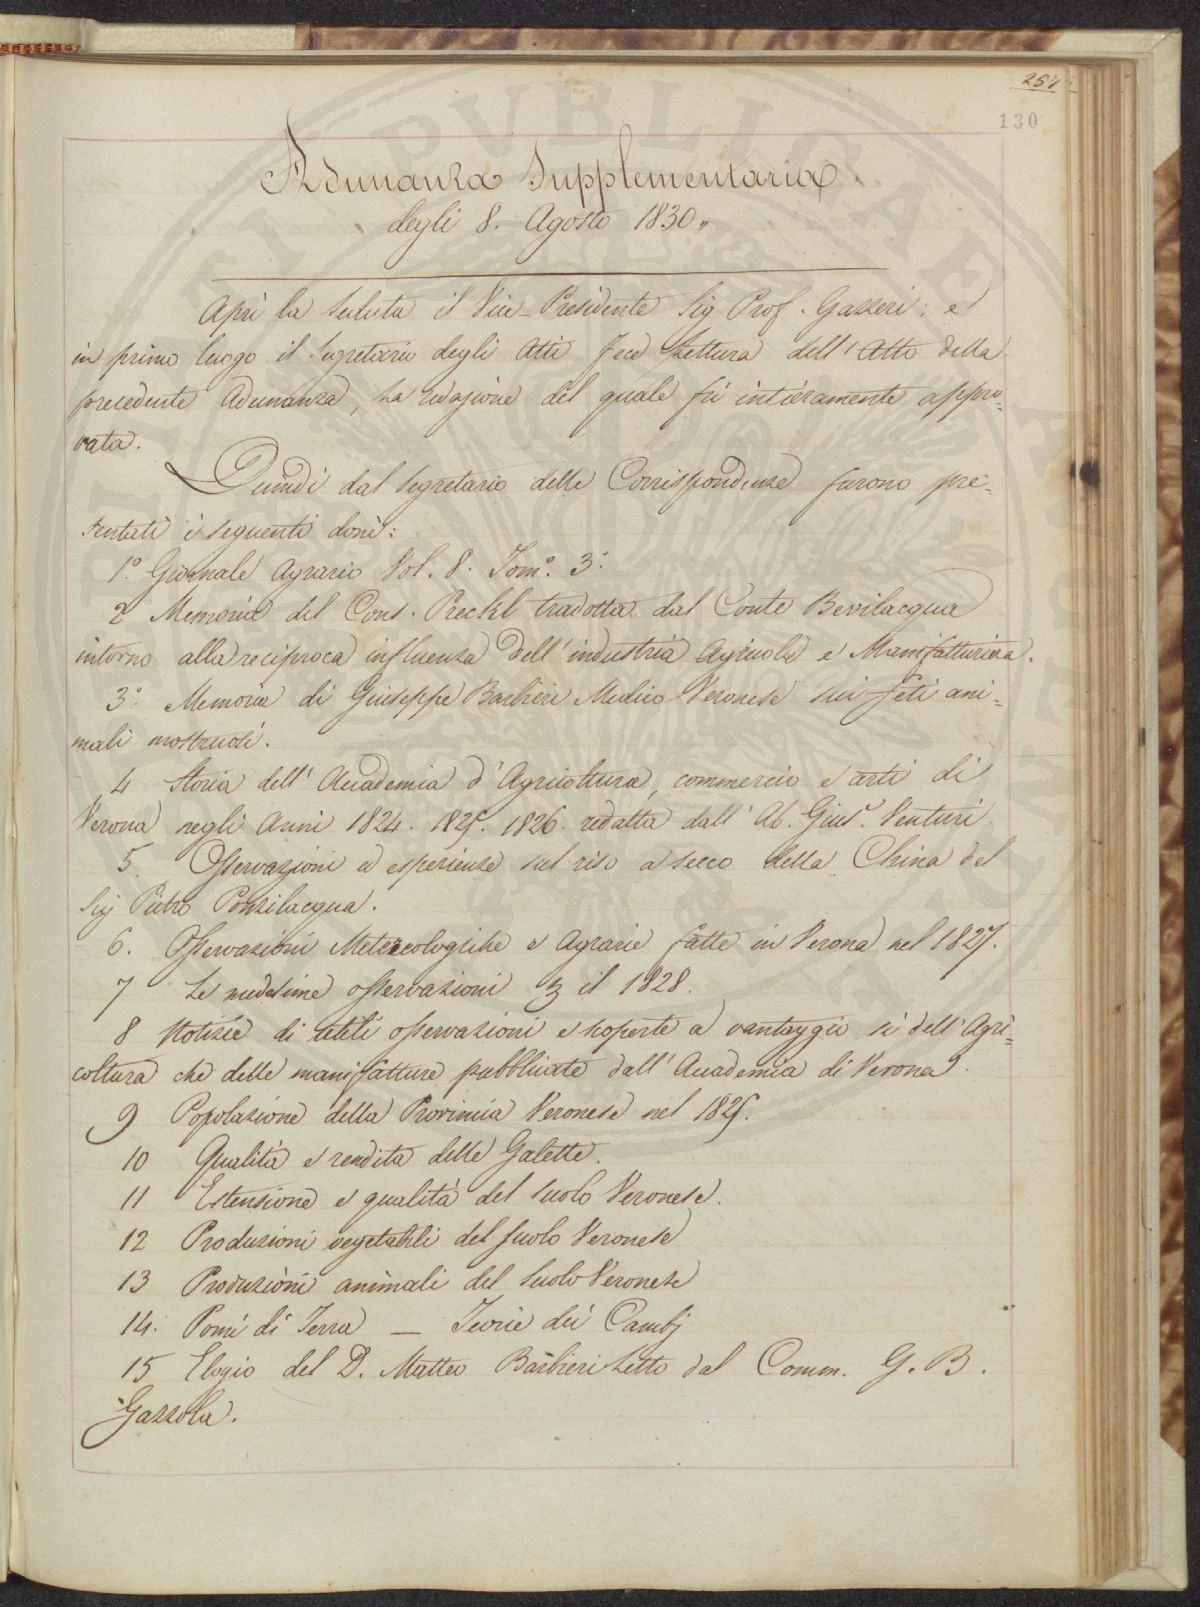 257
130
Adunanza Supplementaria
degli 8. Agosto 1830„
Aprì la Seduta il Vice-Presidente Sig Prof. Gazzeri: e
in primo luogo il Segretario degli Atti fece Lettura dell'Atto della
precedente Adunanza, la redazione del quale fù intieramente appro=
vata.
Quindi dal Segretario delle Corrispondenze furono pre=
sentati i seguenti doni:
1.° Giornale Agrario Vol. 8. Tom.° 3.°
2 Memoria del Cons. Preckl tradotta dal Conte Bevilacqua
intorno alla reciproca influenza dell'industria Agricola e Manifatturiera.
3.° Memoria di Giuseppe Barbieri Medico Veronese sui feti ani=
mali mostruosi.
4 Storia dell'Accademia d'Agricoltura, commercio e arti di
Verona negli Anni 1824. 1825. 1826. redatta dall'Ab. Gius.e Venturi.
5. Osservazioni ed esperienze sul riso a secco della China del
Sig Pietro Ponzilacqua.
6. Osservazioni Metereologiche e Agrarie fatte in Verona nel 1827.
7 Le medesime osservazioni il 1828.
8 Notizie di utili osservazioni e scoperte a vantaggio sì dell'Agri=
coltura che delle manifatture pubblicate dall'Accademia di Verona.
9 Popolazione della Provincia Veronese nel 1825.
10 Qualità e rendita delle Galette.
11 Estensione e qualità del suolo Veronese.
12 Produzioni vegetabili del suolo Veronese
13 Produzioni animali del Suolo Veronese
14. Pomi di Terra — Teorie dei Cambj
15 Elogio del D. Matteo Barbieri Letto dal Comm. G. B.
Gazzola.